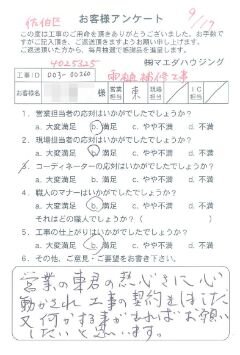 佐伯区
お客様アンケート
9/17
この度は工事のご用命を頂きありがとうございました。お手数で
すがご記入頂き、ご返送頂きますようお願い申し上げます。
ご返送頂いた方から、毎月抽選で感謝品を進呈します。
4025325
㈱マエダハウジング
工事ID 003-00260
補修工事
お客様名 様 営業担当 東 現場担当 IC担当
1. 営業担当者の対応はいかがでしたでしょうか?
a. 大変満足 b. 満足 c. やや不満 d. 不満
2. 現場担当者の対応はいかがでしたでしょうか?
a. 大変満足 b. 満足 c. やや不満 d. 不満
3. コーディネーターの応対はいかがでしたでしょうか?
a. 大変満足 b. 満足 c. やや不満 d. 不満
4. 職人のマナーはいかがでしたでしょうか?
a. 大変満足 b. 満足 c. やや不満 d. 不満
それはどの職人でしょうか? ( )
5. 工事の仕上がりはいかがでしたでしょうか?
a. 大変満足 b. 満足 c. やや不満 d. 不満
6. その他、ご意見・ご要望をお書き下さい。
営業の東君の熱心さに心
動かされ工事の契約をしました
又何かする事があればお願い
したいと思います。